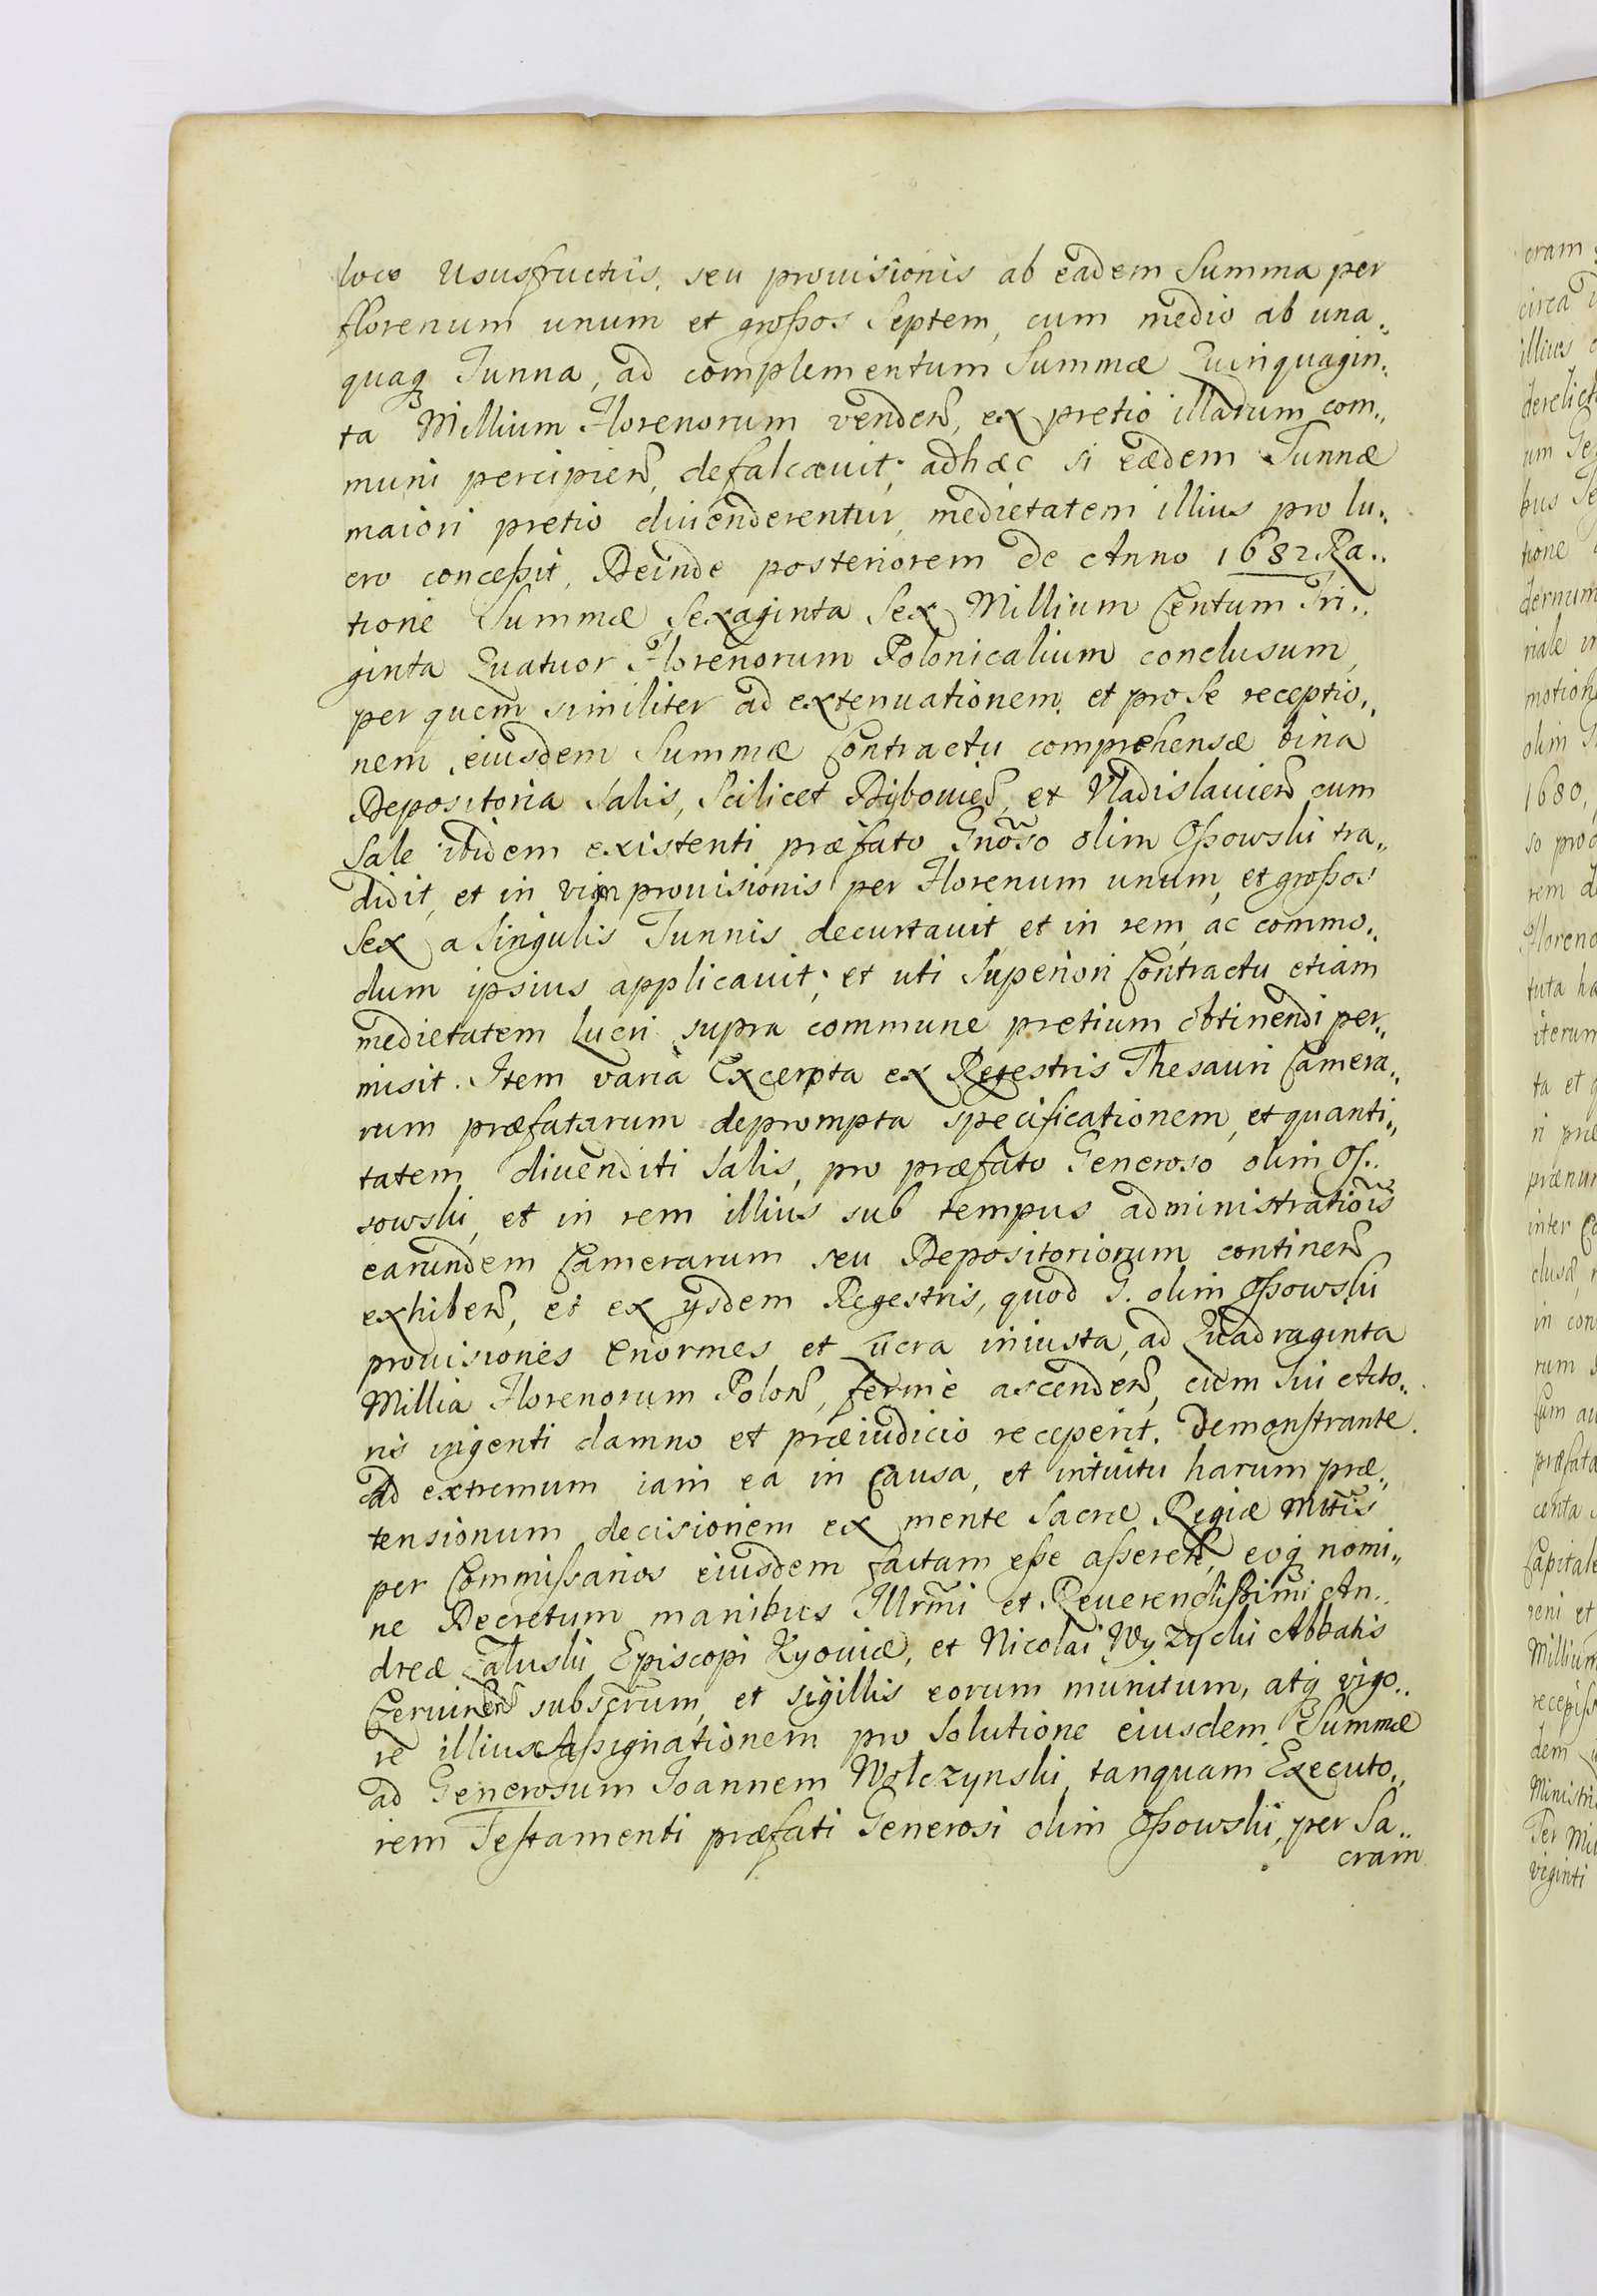 loco Ususfructus, seu prouisionis ab eadem Summa per
florenum unum et großos Septem, cum medio ab una„
quaq₃ Tunna, ad complementum Summæ Quinquagin„
ta Millium Florenorum venden̄, ex pretio illarum com„
muni percipien̄, defalcauit; adhæc si eædem Tunnæ
maiori pretio diuenderentur, medietatem illius pro lu„
cro conceßit, Deinde posteriorem de Anno 1682 Ra„
tione Summæ Sexaginta Sex Millium Centum Tri„
ginta Quatuor Florenorum Polonicalium conclusum,
per quem similiter ad extenuationem, et pro Se receptio„
nem, eiusdem Summæ Contractu comprehensæ bina
Depositoria Salis, Scilicet Dybouien̄, et Vladislauien̄ cum
Sale ibidem existenti, præfato Gnõso olim Oßowski tra„
didit, et in vim prouisionis per Florenum unum, et großos
Sex a Singulis Tunnis decurtauit, et in rem, ac commo„
dum ipsius applicauit; et uti Superiori Contractu etiam
medietatem lucri supra commune pretium obtinendi per„
misit. Item varia Excerpta ex Regestris Thesauri Camera„
rum præfatarum deprompta specificationem, et quanti„
tatem diuenditi Salis, pro præfato Generoso olim Os„
sowski, et in rem illius sub tempus administratiõis
earundem Camerarum seu Depositoriorum continen̄
exhiben̄, et ex ijsdem Regestris, quod G. olim Oßowski
prouisiones enormes et Lucra iniusta, ad Quadraginta
Millia Florenorum Polon̄, ferme ascenden̄, cum Sui Acto„
ris ingenti damno et præiudicio receperit. Demonstrante.
Ad extremum iam ea in Causa, et intuitu harum præ„
tensionum decisionem ex mente Sacræ Regiæ Mttis
per Commissarios eiusdem factam esse asseren̄, eoq₃ nomi„
ne Decretum manibus Illrm̃i et Reuerendissimi An„
dreæ Załuski Episcopi Kyouiæ, et Nicolai Wyżycki Abbatis
Ceruinen̄ subscr̃um, et sigillis eorum munitum, atq₃ vigo„
re illius Assignationem pro Solutione eiusdem Summæ
ad Generosum Joannem Wolczynski, tanquam Executo„
rem Testamenti præfati Generosi olim Oßowski, per Sa„
cram